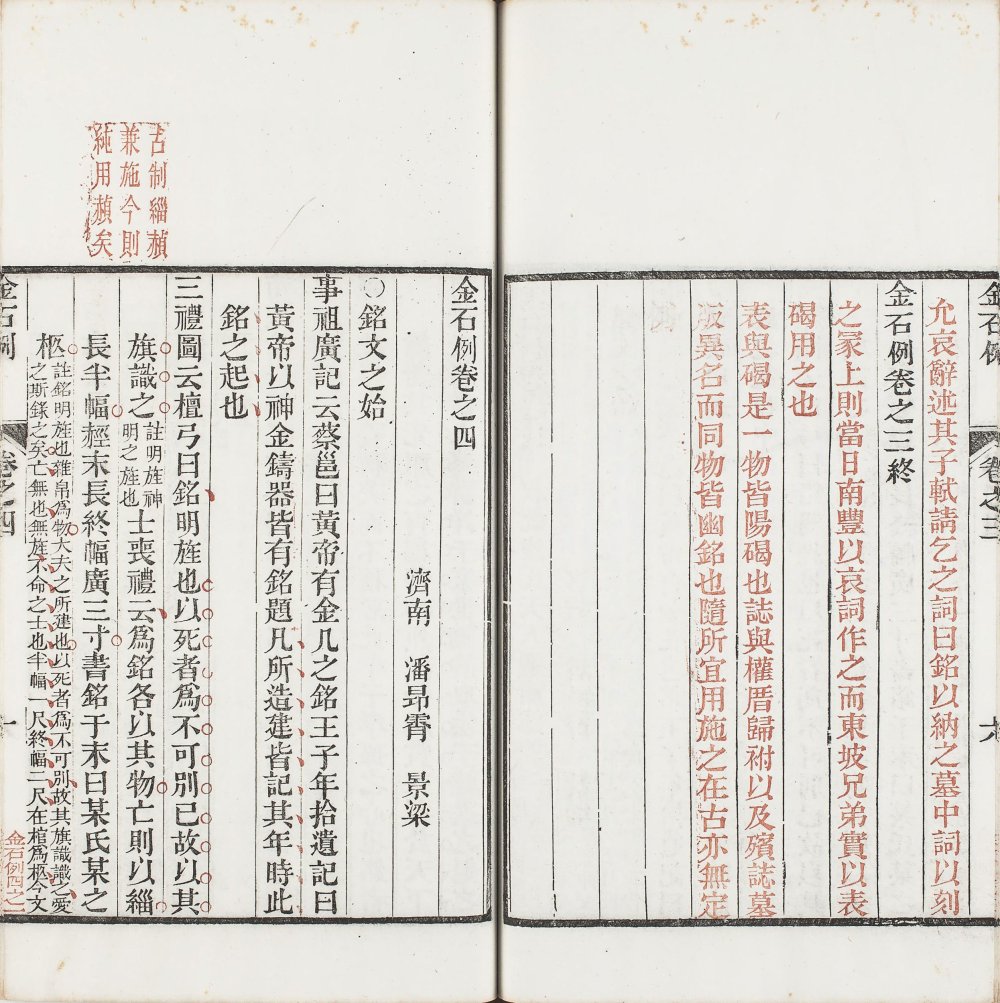 金石例
卷之三
允哀辭述其子軾請乞之詞曰銘以納之墓中詞以刻
金石例卷之三終
之冢上則當日南豐以哀詞作之而東坡兄弟實以表
碣用之也
表與碣是一物皆陽碣也誌與權厝歸祔以及殯誌墓
版異名而同物皆幽銘也隨所宜用施之在古亦無定
金石例卷之四
濟南 潘昂霄 景梁
○銘文之始
事祖廣記云蔡邕曰黃帝有金几之銘王子年拾遺記曰
黃帝以神金鑄器皆有銘題凡所造建皆記其年時此
銘之起也
三禮圖云檀弓曰銘明旌也以死者爲不可別已故以其
旗識之註明旌神明之旌也士喪禮云爲銘各以其物亡則以緇
長半幅䞓末長終幅廣三寸書銘于末曰某氏某之
柩註銘明旌也雜帛爲物大夫之所建也以死者爲不可別故其旗識識之愛
之斯錄之矣亡無也無旌不命之士也半幅一尺終幅二尺在棺爲柩今文
古制緇䞓
兼施今則
純用䞓矣
金石例
卷之四
一
金石例四之一